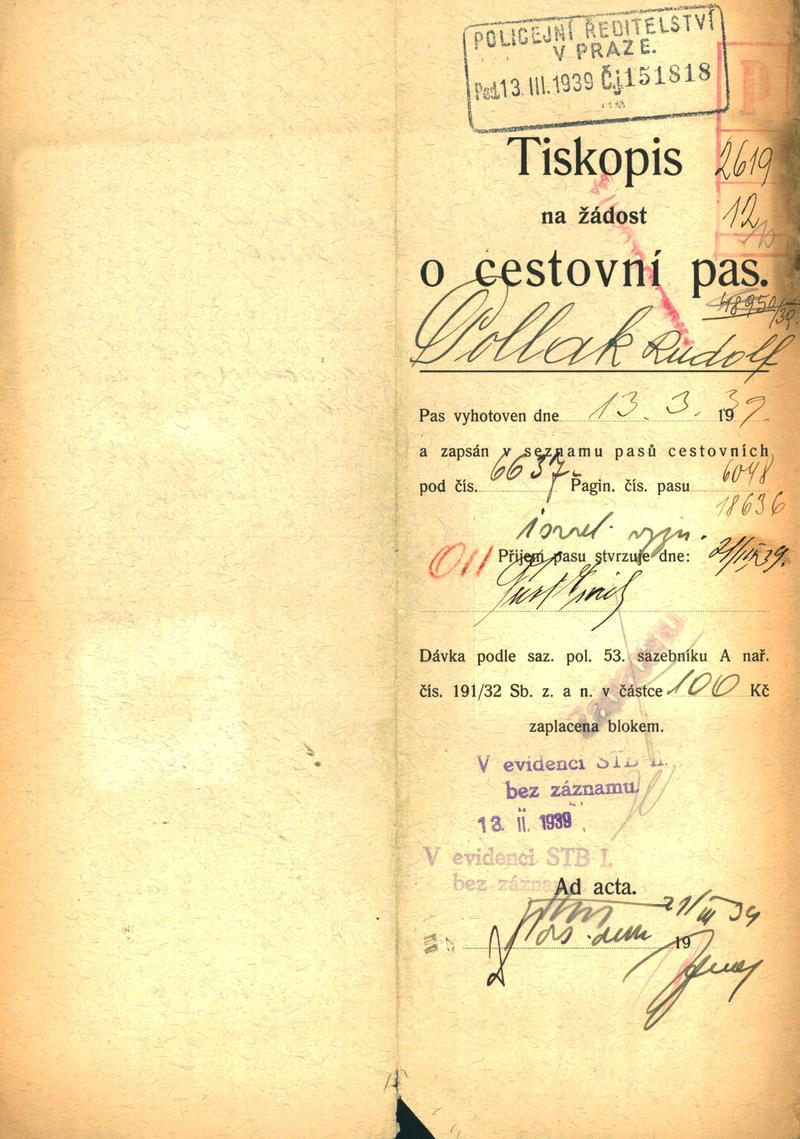 POLICEJNÍ ŘEDITELSTVÍ
V PRAZE.
Pod 13. III. 1939 Čj 151818
P
Tiskopis
2619
na žádost
12
o cestovní pas.
48950/39.
Pollak Rudolf
Pas vyhotoven dne 13. 3. 1939.
a zapsán v seznamu pasů cestovních
pod čís. 6637 Pagin. čís. pasu 6048
18636
israel.
011 Příjem pasu stvrzuje dne: 21/III 39.
Dávka podle saz. pol. 53. sazebníku A nař.
čís. 191/32 Sb. z. a n. v částce 100 Kč
zaplacena blokem.
V evidenci STB II.
bez záznamu.
13. II. 1939
V evidenci STB I.
bez záznamu
Ad acta.
21/III 39
19